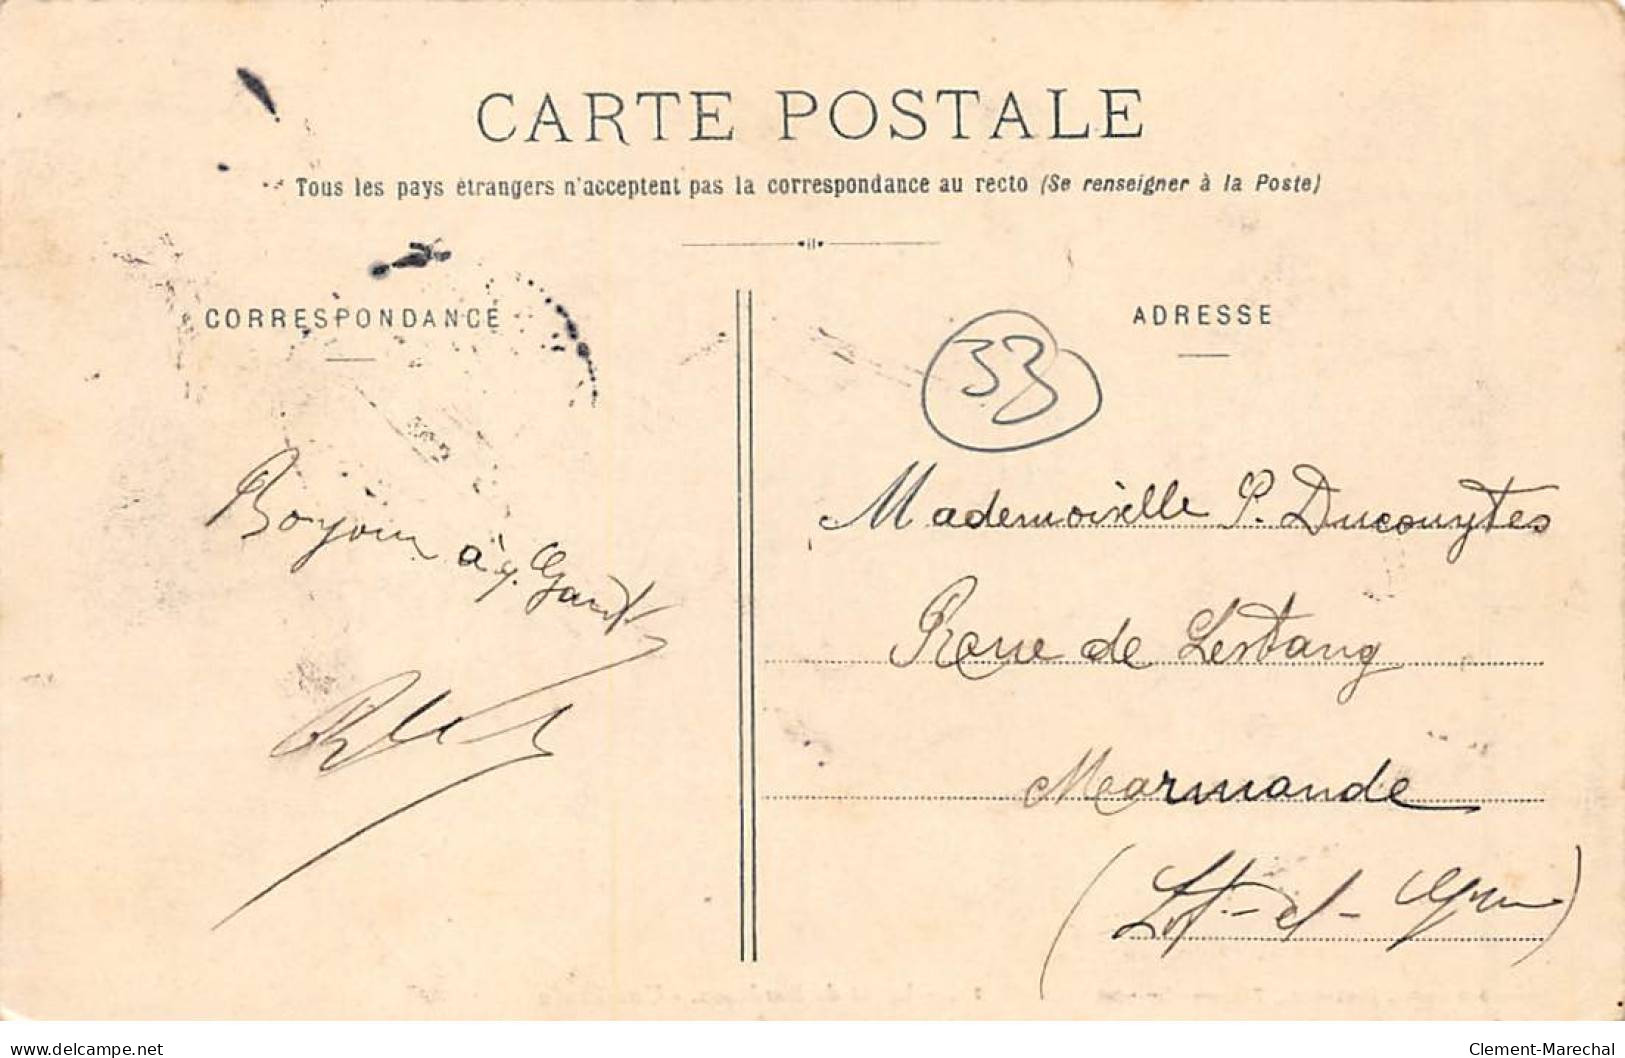 CARTE POSTALE
Tous les pays étrangers n'acceptent pas la correspondance au recto (Se renseigner à la Poste)
CORRESPONDANCE
Bonjour à
ADRESSE
33
Mademoiselle P. Ducouytes
Rue de Lestang
Marmande
(Lot-et-Gne)
delcampe.net
Clement-Marechal